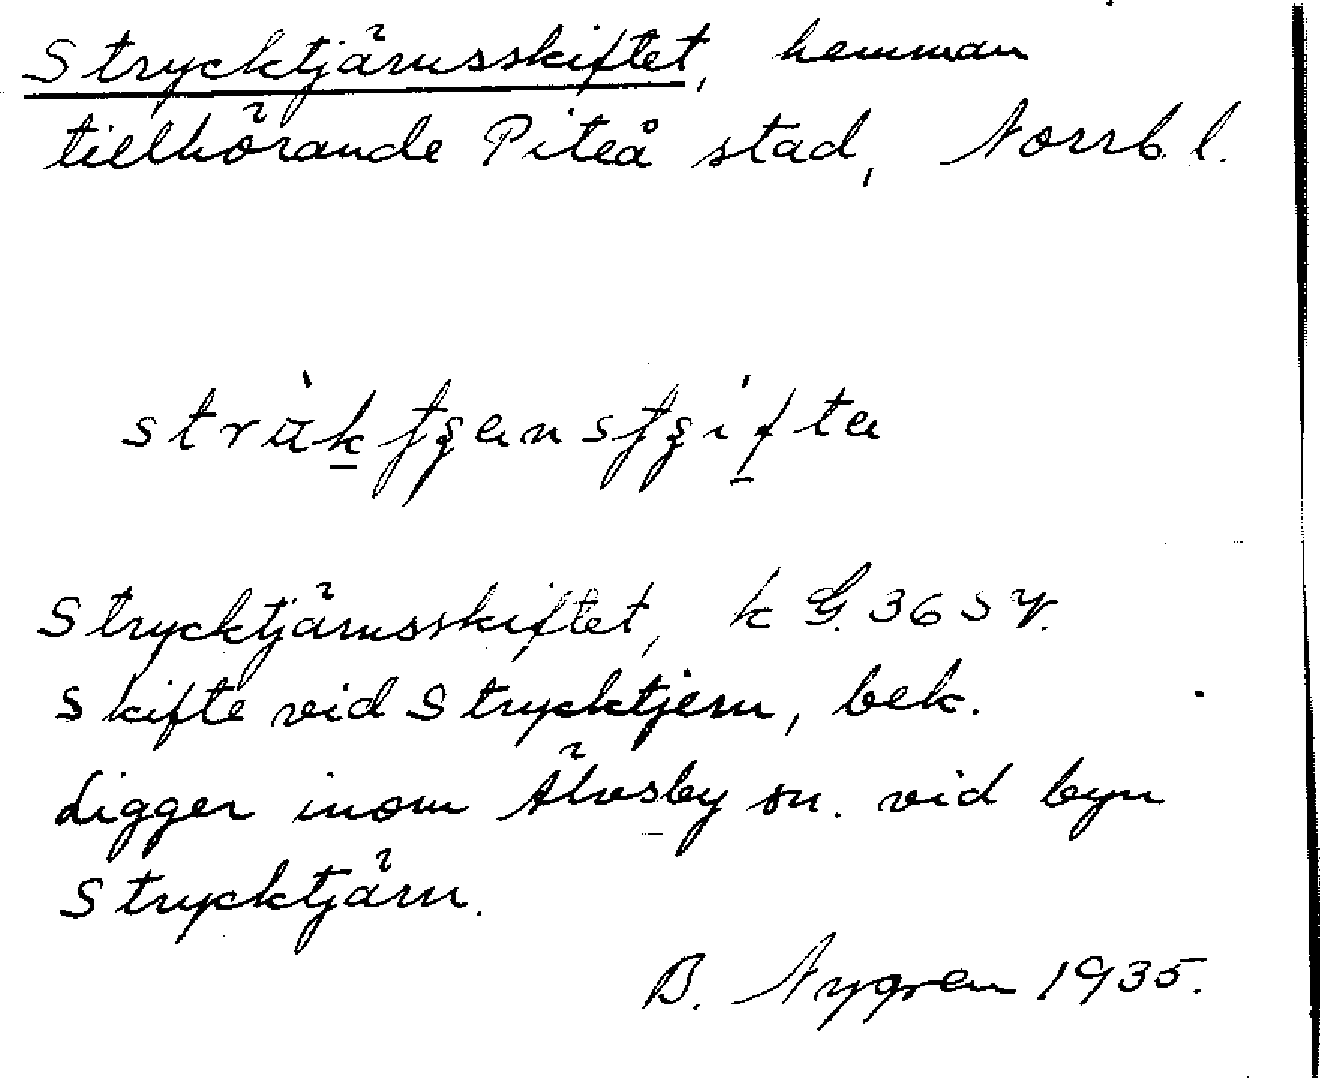 Strycktjärnsskiftet, hemman
tillhörande Piteå stad, Norrb. l.
Strycktjärnsskiftet, k G. 365 V.
Skifte vid Strycktjern, bek.
Ligger inom Älvsby sn. vid byn
Strycktjärn.
B. Nygren 1935.